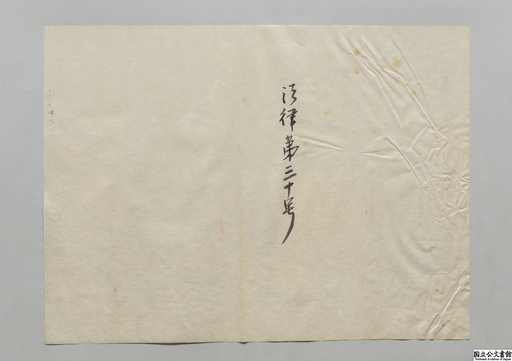 法律第三十号
国立公文書館
National Archives of Japan